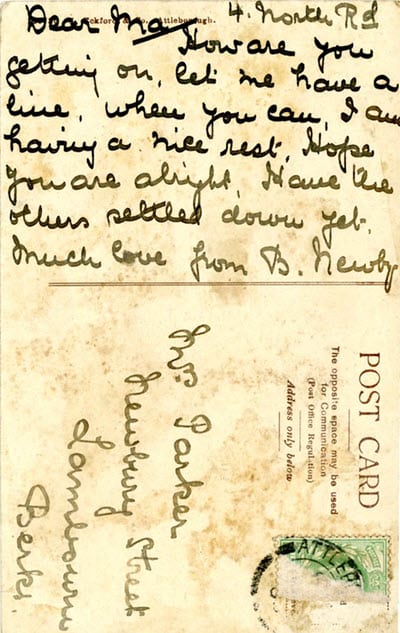 4. North Rd
Dear Ma
How are you
getting on, let me have a
line, when you can, I am
having a nice rest, Hope
you are alright, Have the
others settled down yet.
Much love from B. Newby
POST CARD
The opposite space may be used
for Communication
(Post Office Regulation)
Address only below
Mrs Parker
Newbury Street
Lambourn
Berks.
ATTLEB